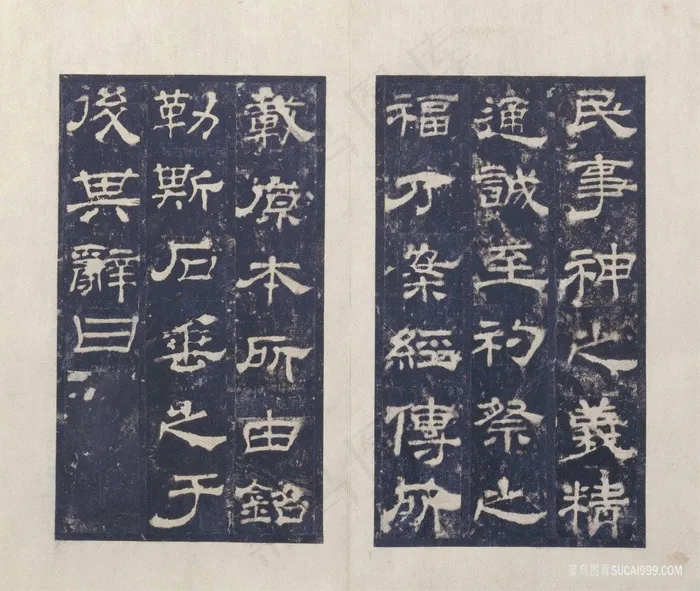 民事神之義精
通誠至礿祭之
福乃案經傳所
載原本所由銘
勒斯石垂之于
後其辭曰
菜鸟图库SUCAI999.COM